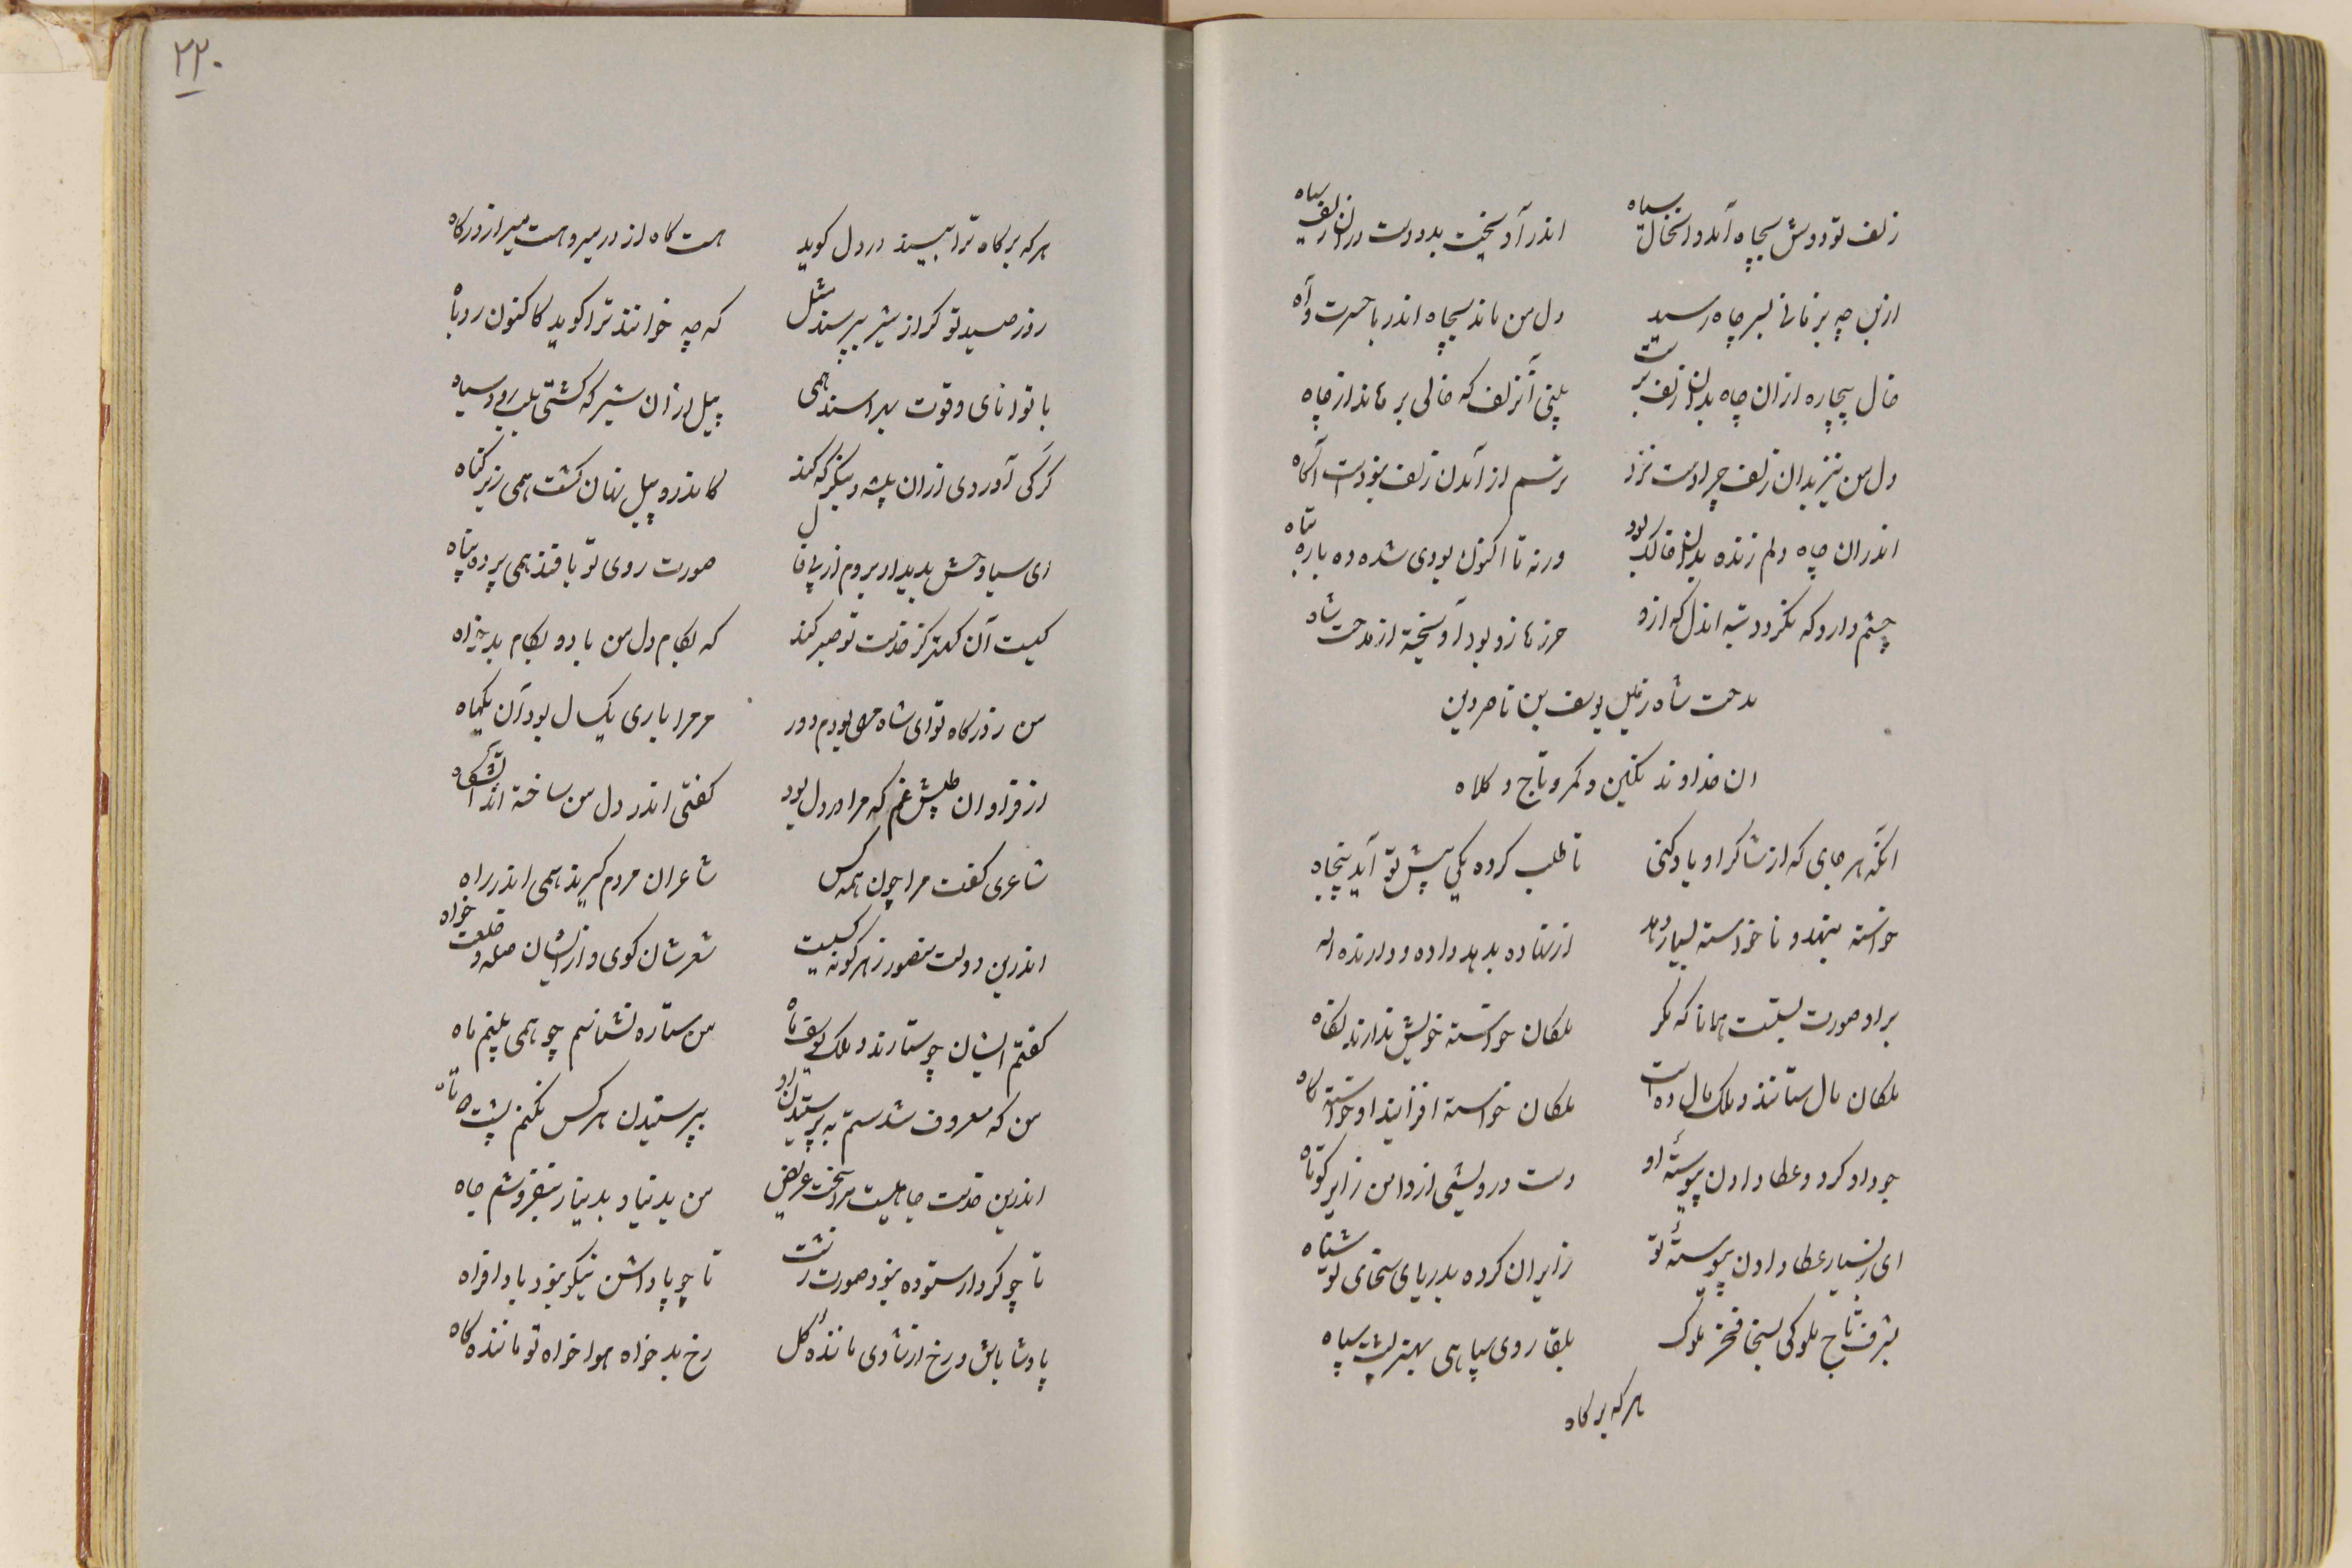 زلف تو دوش بچاه آمد و آن خال سیاه
اندر آویخت بدو دست در آن زلف سیاه
ازبن چه بزمانی بسر چاه رسید
دل من ماند بچاه اندر با حسرت و آه
خال بیچاره ازان چاه بدان زلف برست
بینی آنزلف که خالی برهاند از چاه
دل من نیز بدان زلف چرا دست نزد
ترسم از آمدن زلف نبودست آگاه
اندران چاه دلم زنده بدان خالک بود
ورنه تا اکنون بودی شده ده باره تباه
چشم دارد که نگردد تبه اندل که ازو
حرزها زو بود آویخته از مدحت شاه
مدحت شاه زمین یوسف بن ناصر دین
ان خداوند نگین و کمر و تاج و کلاه
انکه هر جای که از شاکر او یاد کنی
تا طلب کرده یکی پیش تو آید پنجاه
خواسته ننهد و ناخواسته بسیار دهد
ازنهاده بدهد داده و دارنده اله
براو صورت بستت همانا که مگر
ملکان خواسته خویش ندارند نگاه
ملکان مال ستانند و ملک مال ده است
ملکان خواسته افزایند او خواسته کاه
جود او کرد و عطا دادن پیوسته او
دست درویشی از دامن زایر کوتاه
ای ز بسیار عطا دادن پیوسته تو
زایران کرده بدریای سخای تو شناه
بشرف تاج ملوکی بسخا فخر ملوک
بلقا روی سپاهی بهنر پشت سپاه
هر که بر گاه
۲۲۰
هر که بر گاه ترا بیند در دل گوید
هست گاه از در میر و هست میر از در گاه
روز صید تو گر از شیر بپرسند مثل
که چه خوانند ترا گوید کاکنون روباه
با توانای و قوت بهراسند همی
پیل ازان شیر که کشتی بلب رود سیاه
کرگی آوردی ازان بیشه و بنگر که کند
کاندرو پیل نهان گشت همی زیر گیاه
ای سیاوخش بدیدار بروم از پی فال
صورت روی تو بافند همی پرده پناه
کیست آن کهتر کز خدمت تو صبر کند
که بکام دل من بادو بکام بدخواه
من ز درگاه تو ای شاه مهی بودم دور
مر مرا باری یک سال بود آن یکماه
از فراوان طپش غم که مرا در دل بود
گفتی اندر دل من ساخته اند آتشگاه
شاعری گفت مرا چون همه کس
شاعران مردم گیرند همی اندر راه
اندرین دولت منصور ز هر گونه کسیست
شعرشان گوی و ازیشان صله و خلعت خواه
گفتم ایشان چو ستارند و ملک یوسف ماه
من ستاره نشناسم چو همی بینم ماه
من که معروف شدستم به پرستیدن او
بپرستیدن هر کس نکنم پشت دوتاه
اندرین خدمت جاهیست مرا سخت عریض
من بدنیا و بدینار بنفروشم جاه
تا چو کردار ستوده نبود صورت زشت
تا چو پاداشن نیکو نبود بادافراه
پادشا باش و رخ از شادی ماننده گل
رخ بدخواه هوا خواه تو ماننده کاه